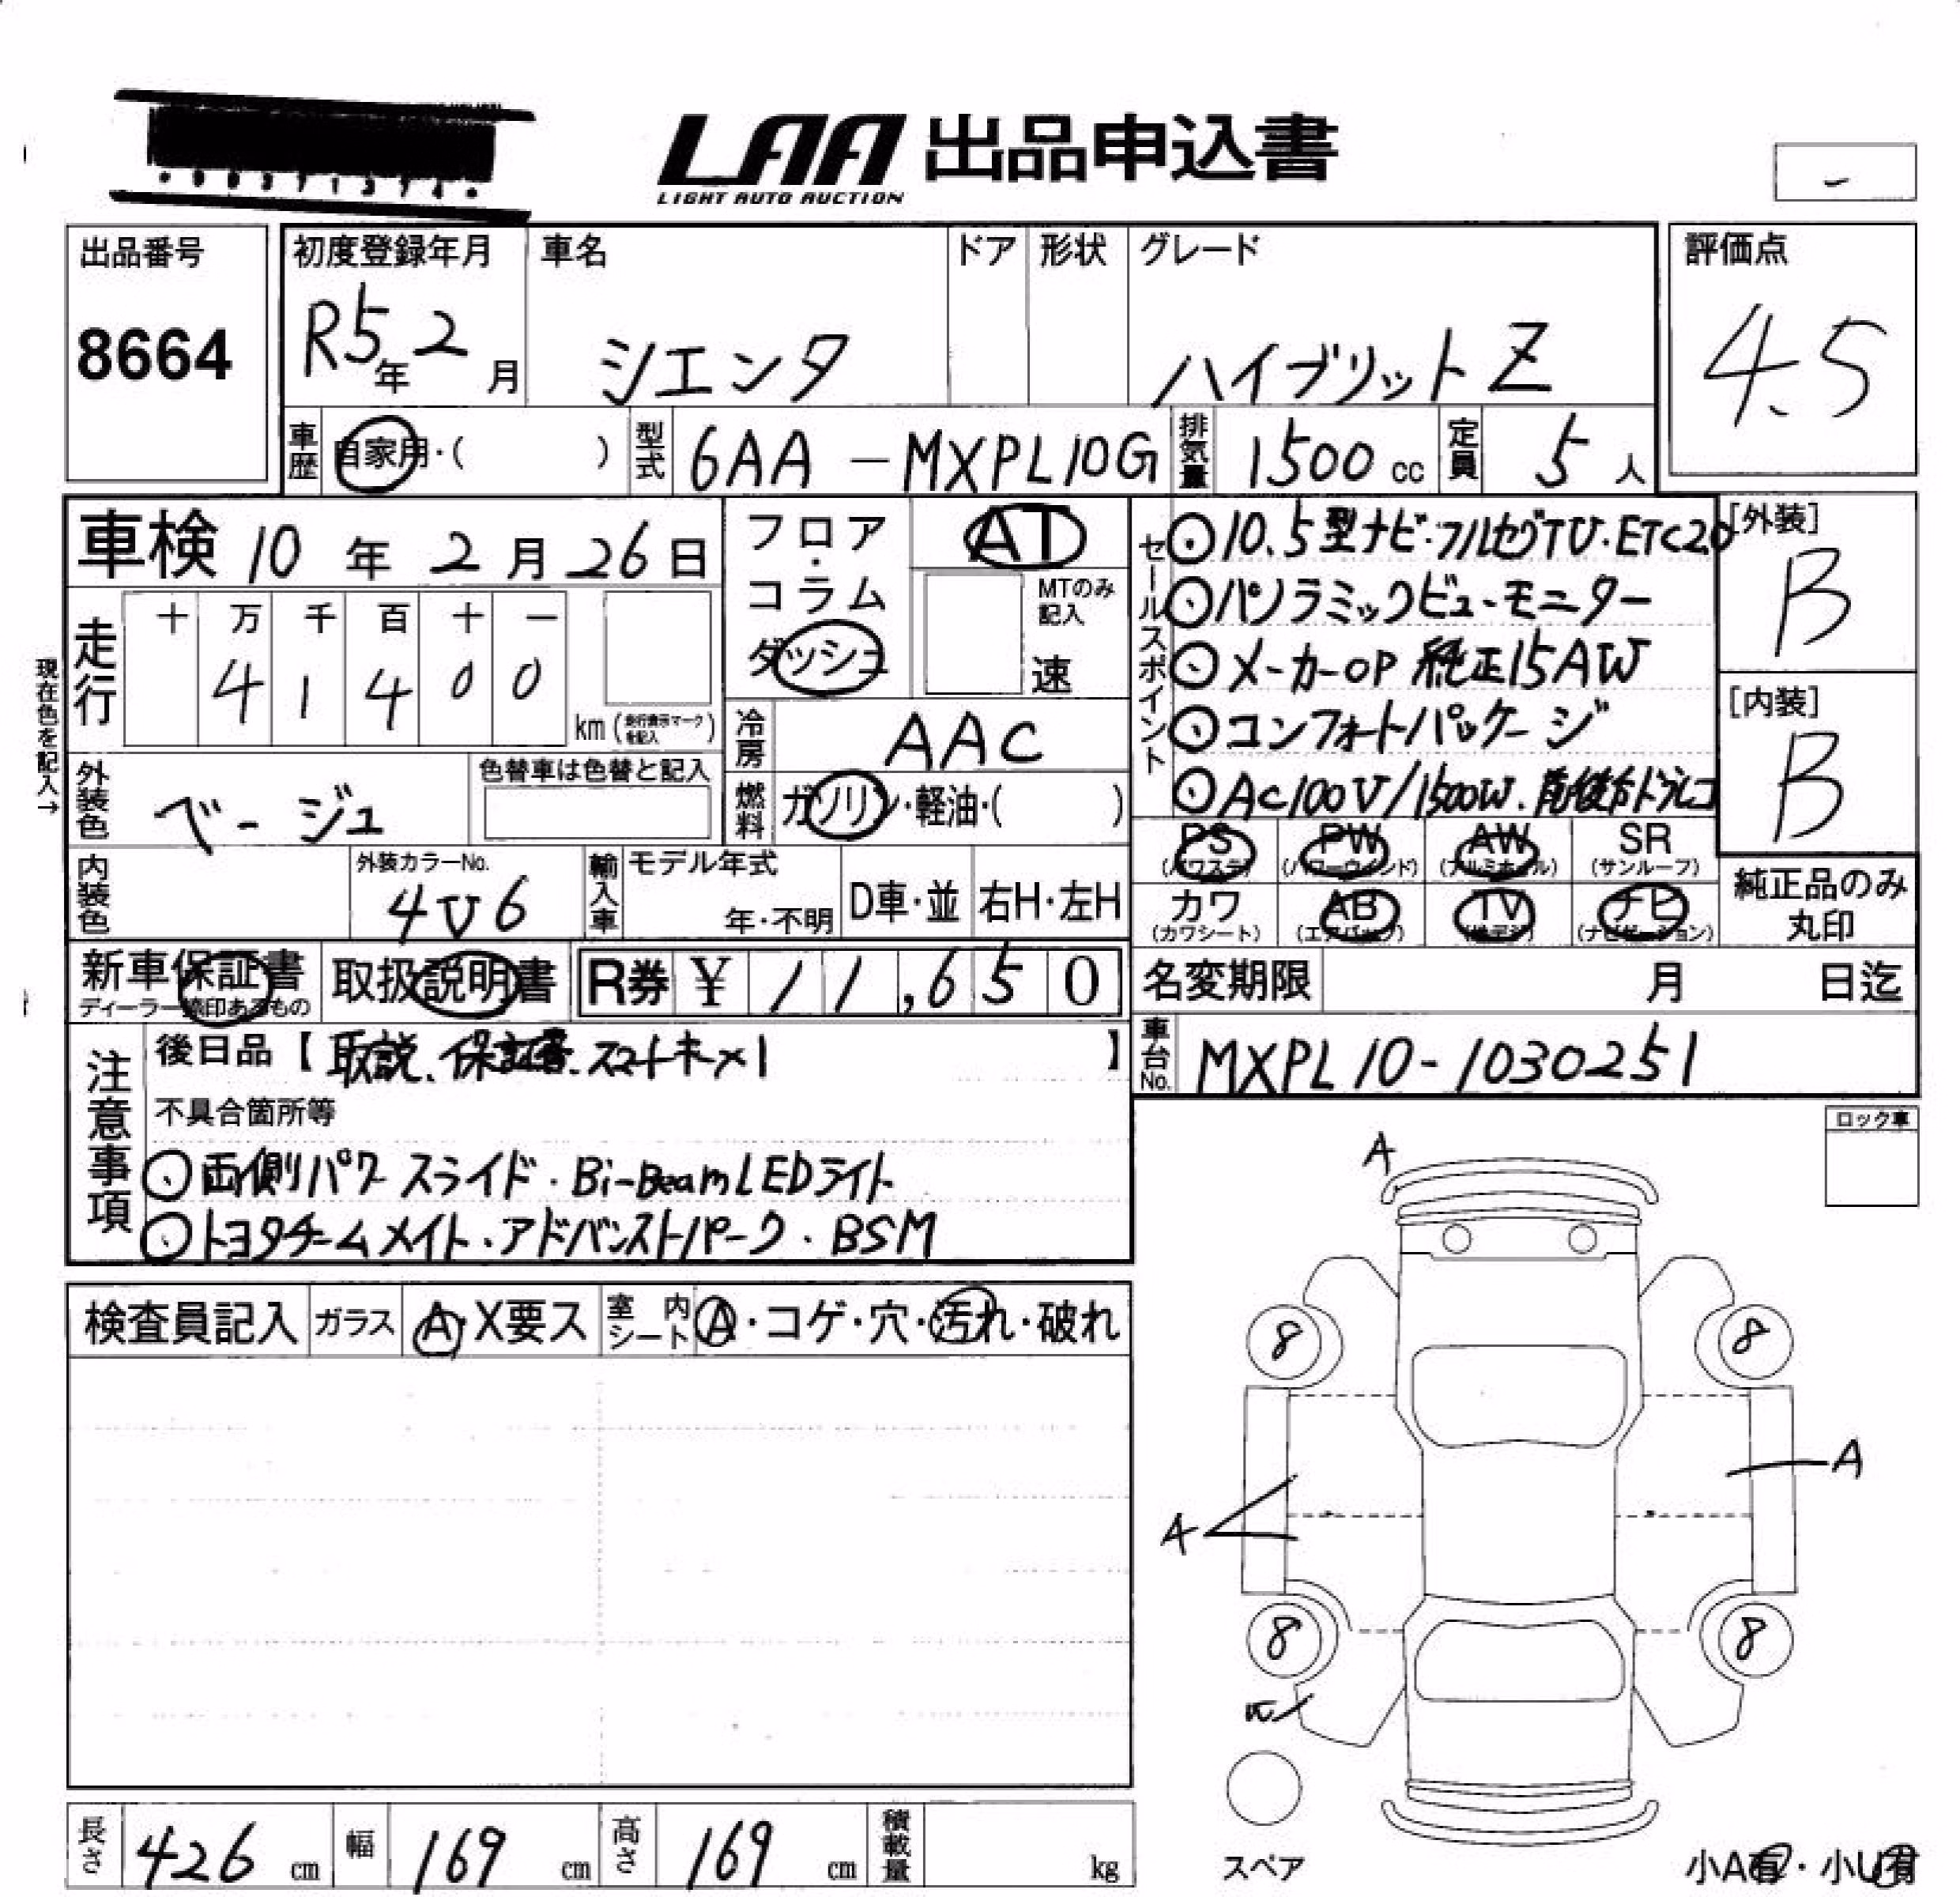 LAA 出品申込書
LIGHT AUTO AUCTION
-
出品番号
8664
初度登録年月
R5年 2月
車名
シエンタ
ドア
形状
グレード
ハイブリット Z
評価点
4.5
車歴 自家用・( )
型式 6AA-MXPL10G
排気量 1500cc
定員 5人
車検 10年 2月 26日
フロア・コラム
ダッシュ
AT
MTのみ記入
速
セールスポイント
⊙10.5型ナビ・フルセグTV・ETC2.0
⊙パノラミックビューモニター
⊙メーカーOP 純正15AW
⊙コンフォートパッケージ
⊙AC100V/1500W. 前後ドラレコ
[外装]
B
[内装]
B
現在色を記入→
走行
十 万 千 百 十 一
4 1 4 0 0
km (走行表示マークを記入)
冷房 AAC
外装色 ベージュ
色替車は色替と記入
燃料 ガソリン・軽油・( )
PS (パワステ) PW (パワーウインド) AW (アルミホイル) SR (サンルーフ)
カワ (カワシート) AB (エアバック) TV (地デジ) ナビ (ナビゲーション)
純正品のみ丸印
内装色
外装カラーNo.
4V6
輸入車
モデル年式
年・不明
D車・並
右H・左H
新車保証書
ディーラー捺印あるもの
取扱説明書
R券 ¥ 11,650
名変期限 月 日迄
車台No. MXPL10-1030251
注意事項
後日品【取説、保証書、スマートキー×1】
不具合箇所等
⊙両側パワースライド・Bi-BeamLEDライト
⊙トヨタチームメイト・アドバンストパーク・BSM
ロック車
検査員記入
ガラス A・X要ス
室内シート A・コゲ・穴・汚れ・破れ
A
8 8
A
A
8 8
スペア
小A有・小U有
長さ 426 cm
幅 169 cm
高さ 169 cm
積載量 kg